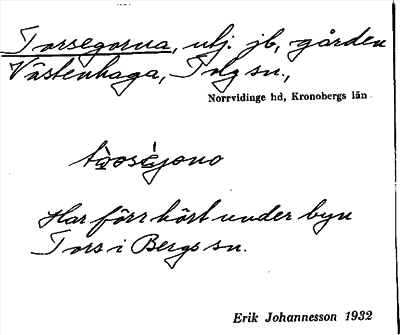 Torsegorna, utj. jb, gården
Västenhaga, Tolg sn.,
Norrvidinge hd, Kronobergs län
Har förr hört under byn
Tors i Bergs sn.
Erik Johannesson 1932